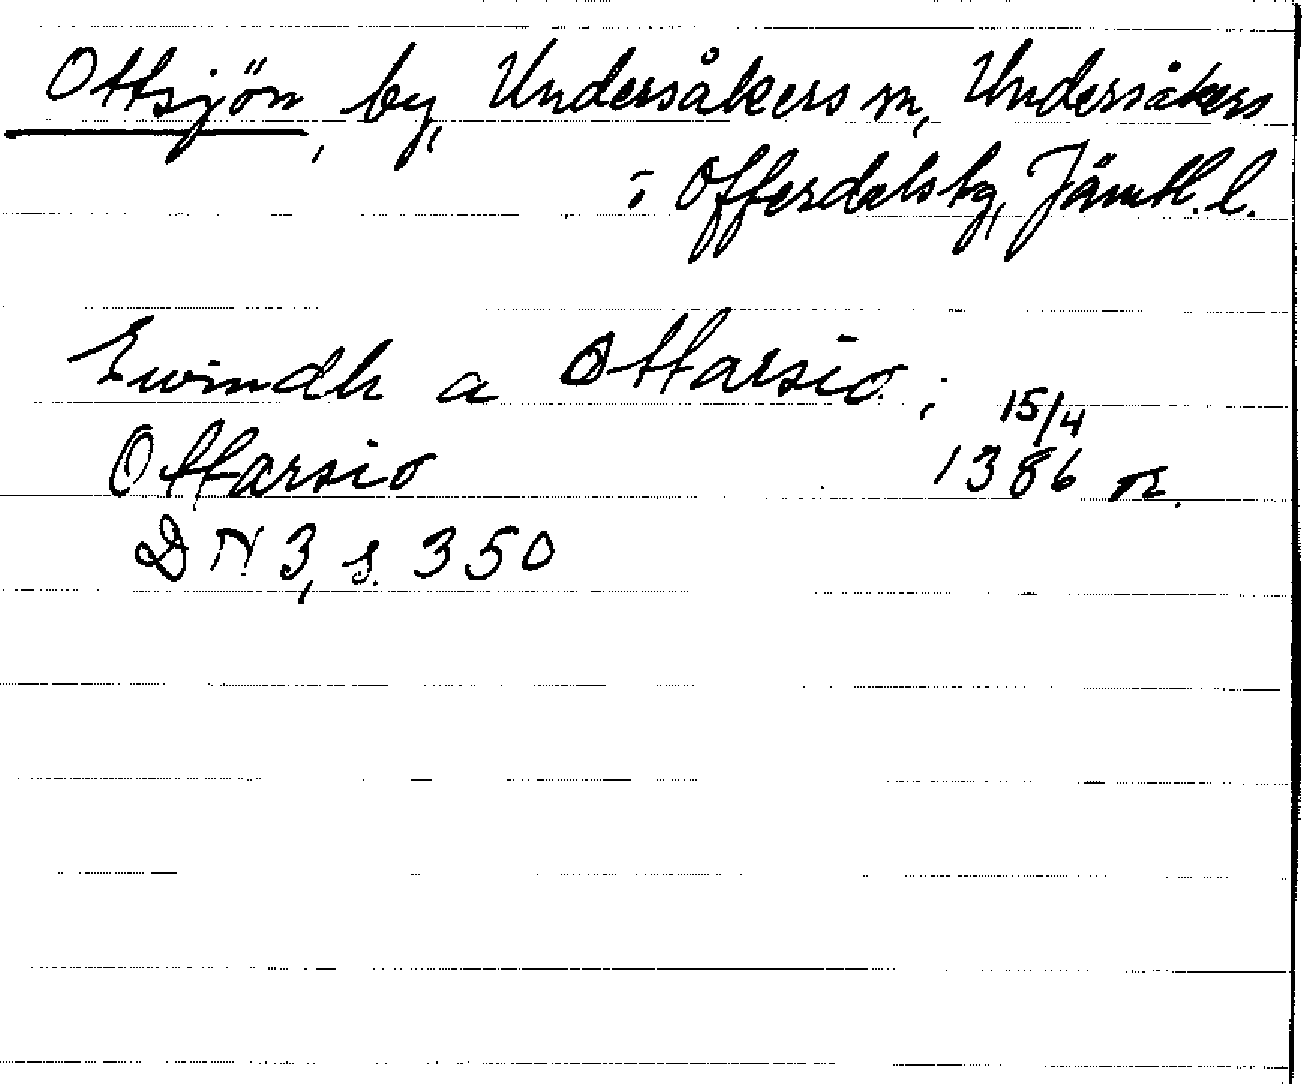 Ottsjön, by, Undersåkers sn, Undersåkers
i Offerdals tg, Jämtl. l.
Ewindh a Ottarsio ; 15/4
Ottarsio 1386 or.
DN 3, s. 350